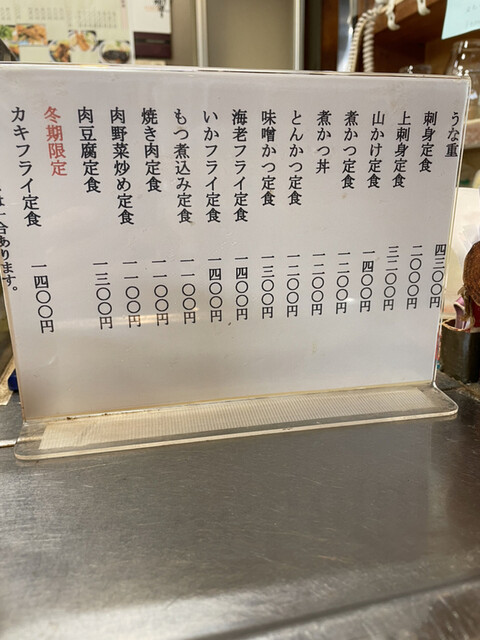 うな重 四三〇〇円
刺身定食 二〇〇〇円
上刺身定食 三二〇〇円
山かけ定食 一四〇〇円
煮かつ定食 一二〇〇円
煮かつ丼 一一〇〇円
とんかつ定食 一二〇〇円
味噌かつ定食 一三〇〇円
海老フライ定食 一四〇〇円
いかフライ定食 一四〇〇円
もつ煮込み定食 一一〇〇円
焼き肉定食 一一〇〇円
肉野菜炒め定食 一一〇〇円
肉豆腐定食 一三〇〇円
冬期限定
カキフライ定食 一四〇〇円
あります。